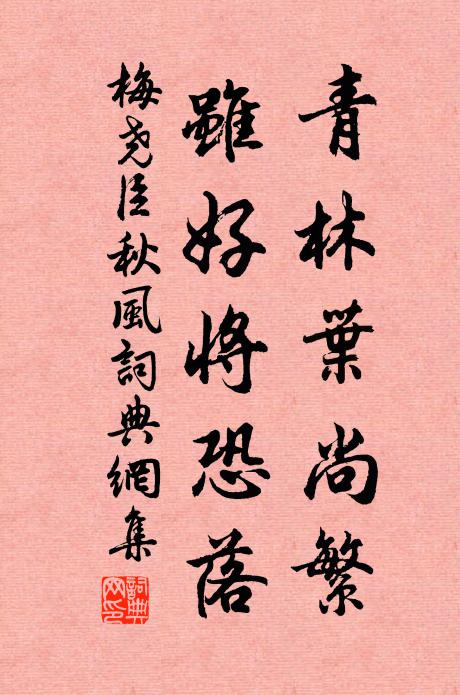 青林葉尚繁
雖好將恐落
梅尧臣秋風詞典網集
詞典网印